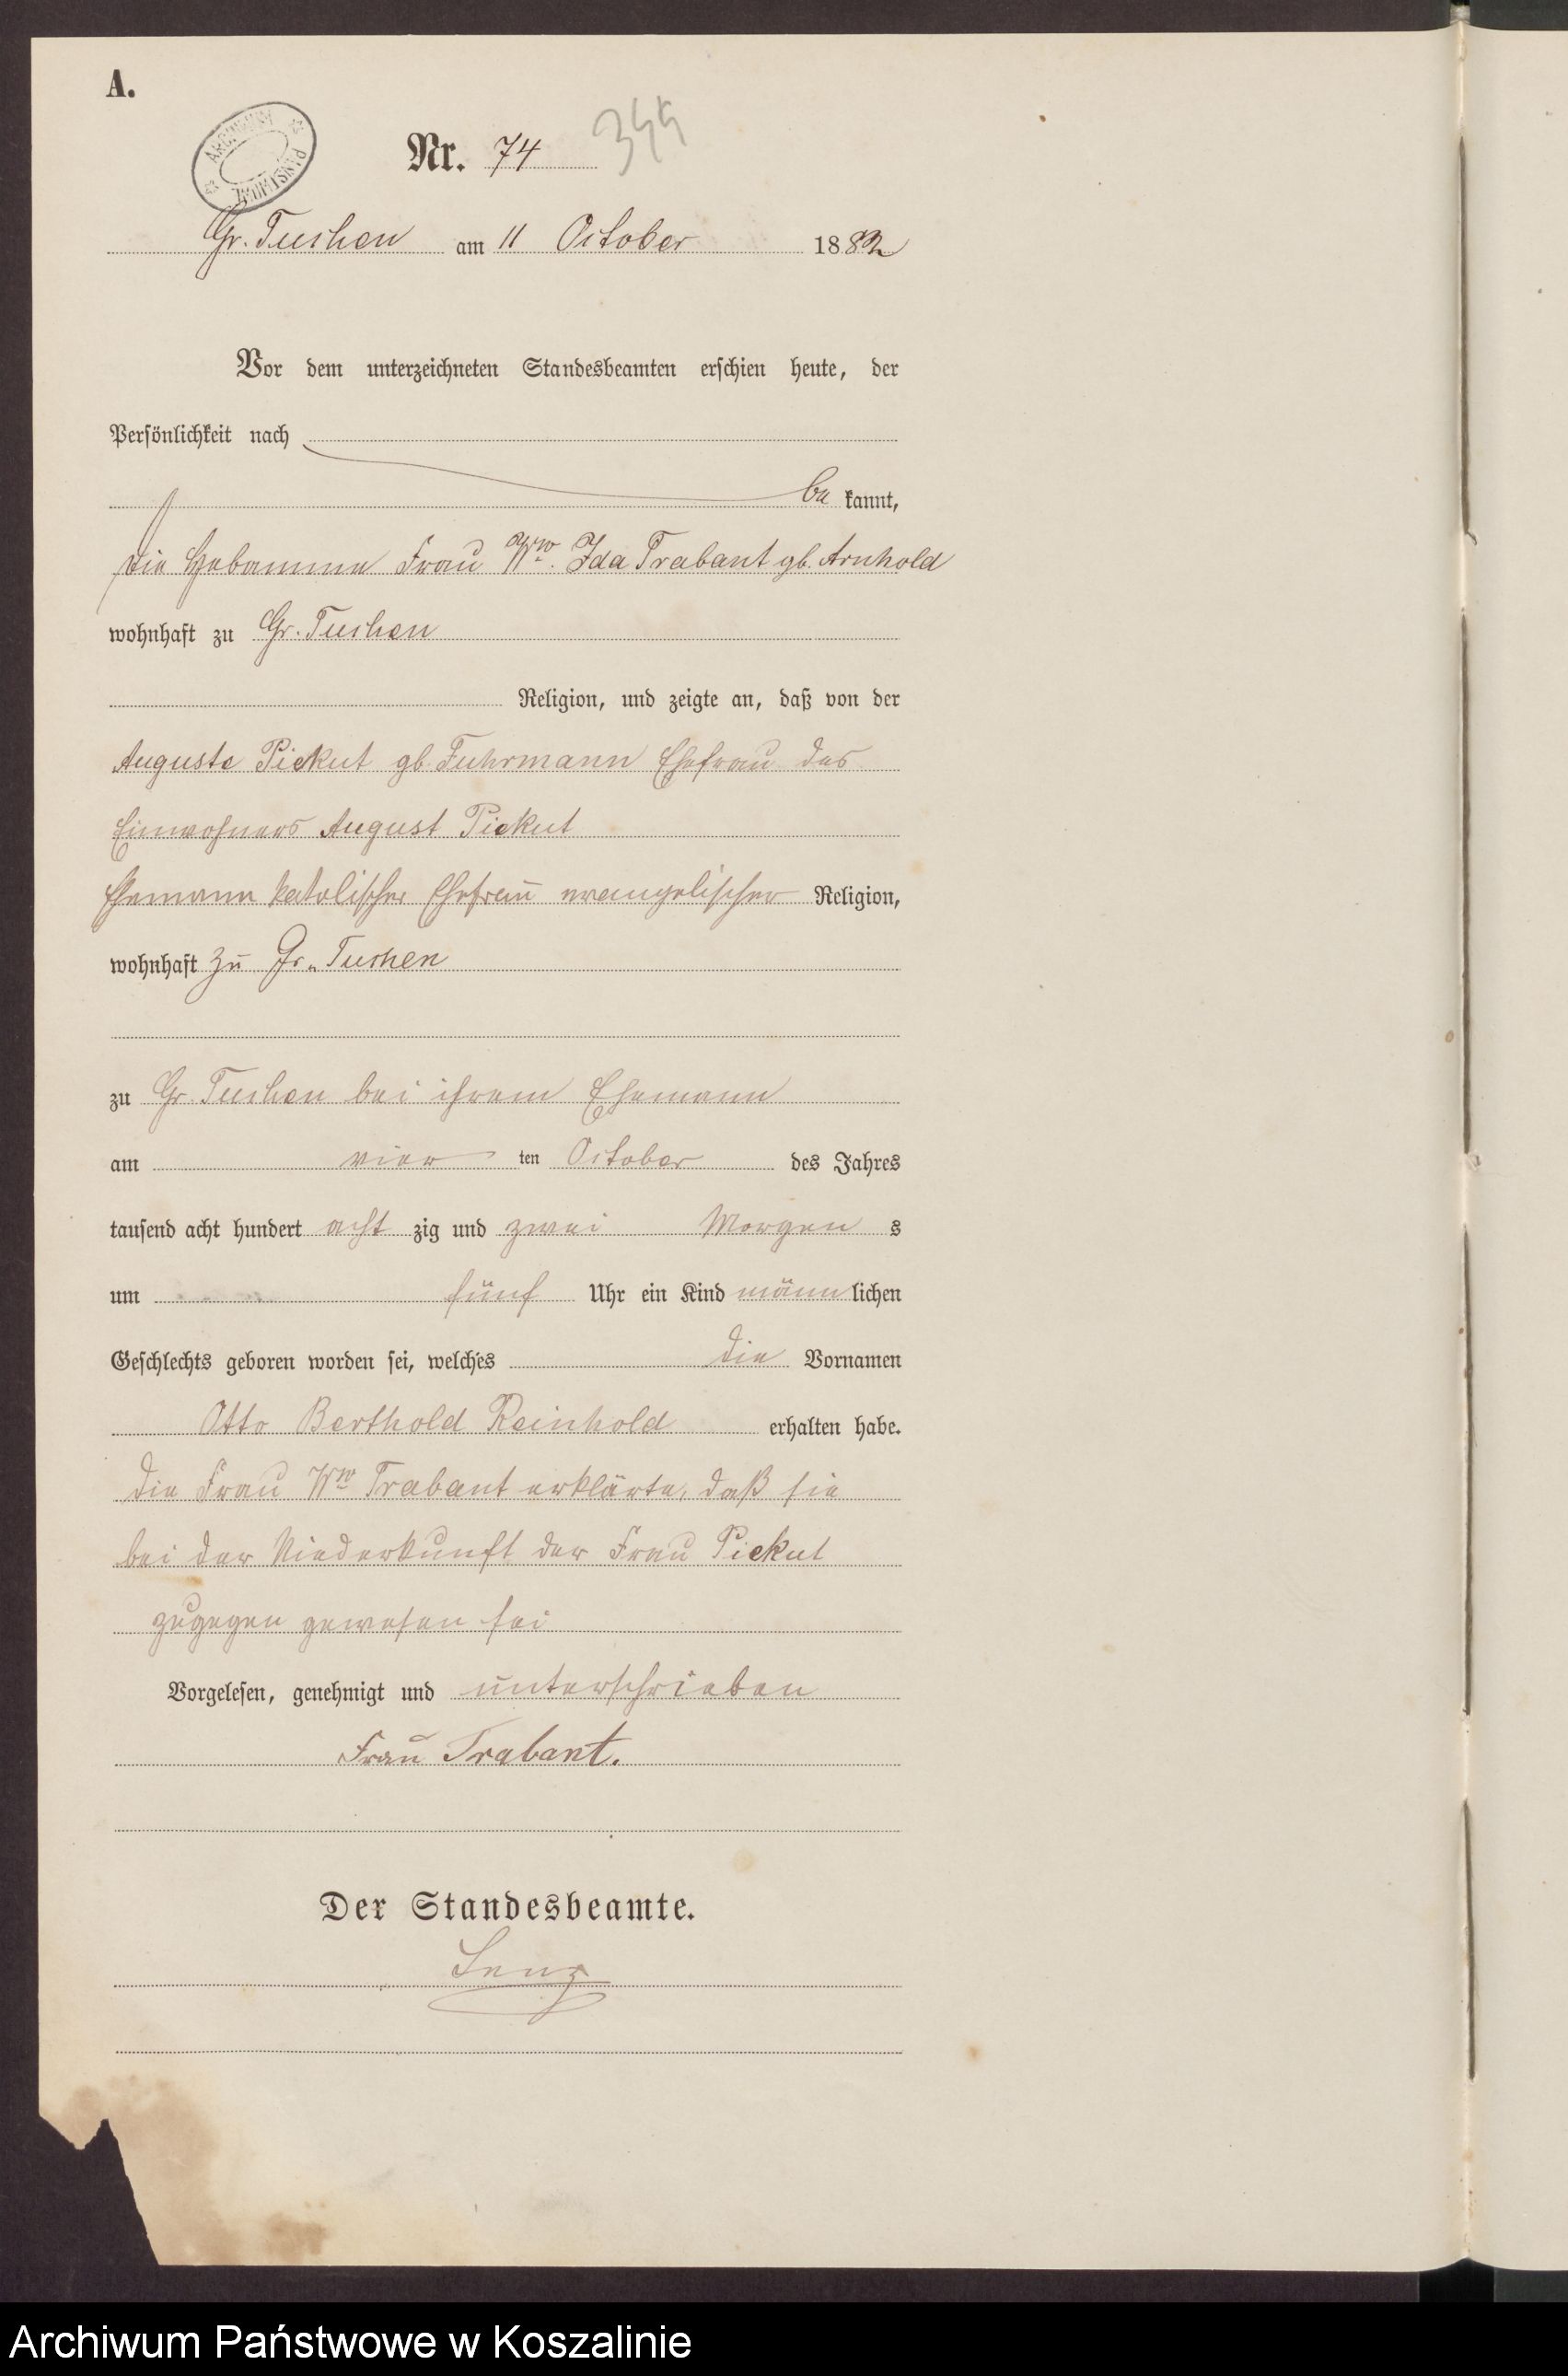 A.
ARCHIWUM PAŃSTWOWE
Nr. 74 344
Gr. Tuchen am 11 October 1882
Vor dem unterzeichneten Standesbeamten erschien heute, der
Persönlichkeit nach
be kannt,
die Hebamme Frau Ww. Ida Trabant gb. Arnhold
wohnhaft zu Gr. Tuchen
Religion, und zeigte an, daß von der
Auguste Piekut gb. Fuhrmann Ehefrau des
Einwohners August Piekut
Ehemann katolischer Ehefrau evangelischer Religion,
wohnhaft zu Gr. Tuchen
zu Gr. Tuchen bei ihrem Ehemann
am vier ten October des Jahres
tausend acht hundert acht zig und zwei Morgen s
um fünf Uhr ein Kind männ lichen
Geschlechts geboren worden sei, welches die Vornamen
Otto Berthold Reinhold erhalten habe.
die Frau Ww Trabant erklärte, daß sie
bei der Niederkunft der Frau Piekut
zugegen gewesen sei
Vorgelesen, genehmigt und unterschrieben
Frau Trabant.
Der Standesbeamte.
Lenz
Archiwum Państwowe w Koszalinie